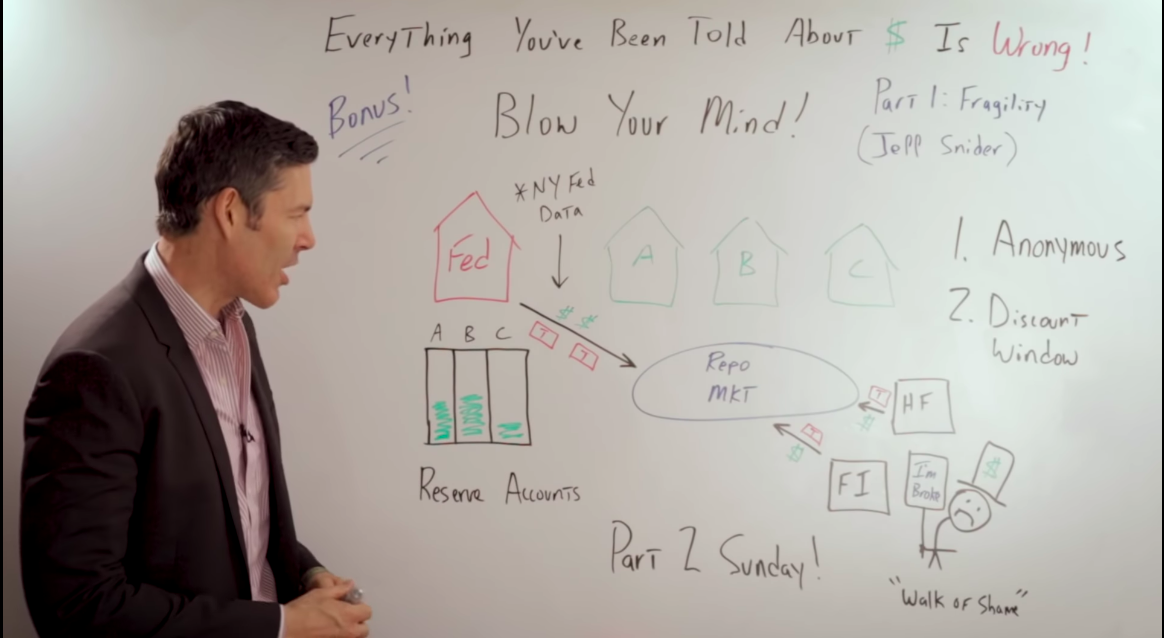 EveryThing You've Been Told About $ Is Wrong!
Bonus!
Blow Your Mind!
Part 1: Fragility
(Jeff Snider)
*NY Fed
Data
Fed
A
B
C
1. Anonymous
2. Discount
Window
A B C
$ $
T T
Repo
MKT
T
$
HF
T
$
FI
I'm
Broke
$
Reserve Accounts
Part 2 Sunday!
"Walk of Shame"